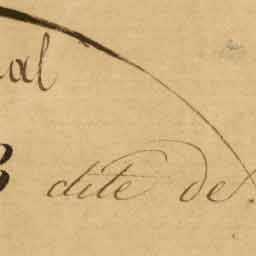 al
B dite de